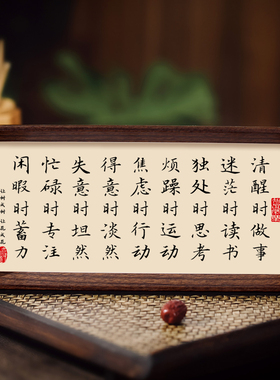 清醒时做事
迷茫时读书
独处时思考
烦躁时运动
焦虑时行动
得意时淡然
失意时坦然
忙碌时专注
闲暇时蓄力